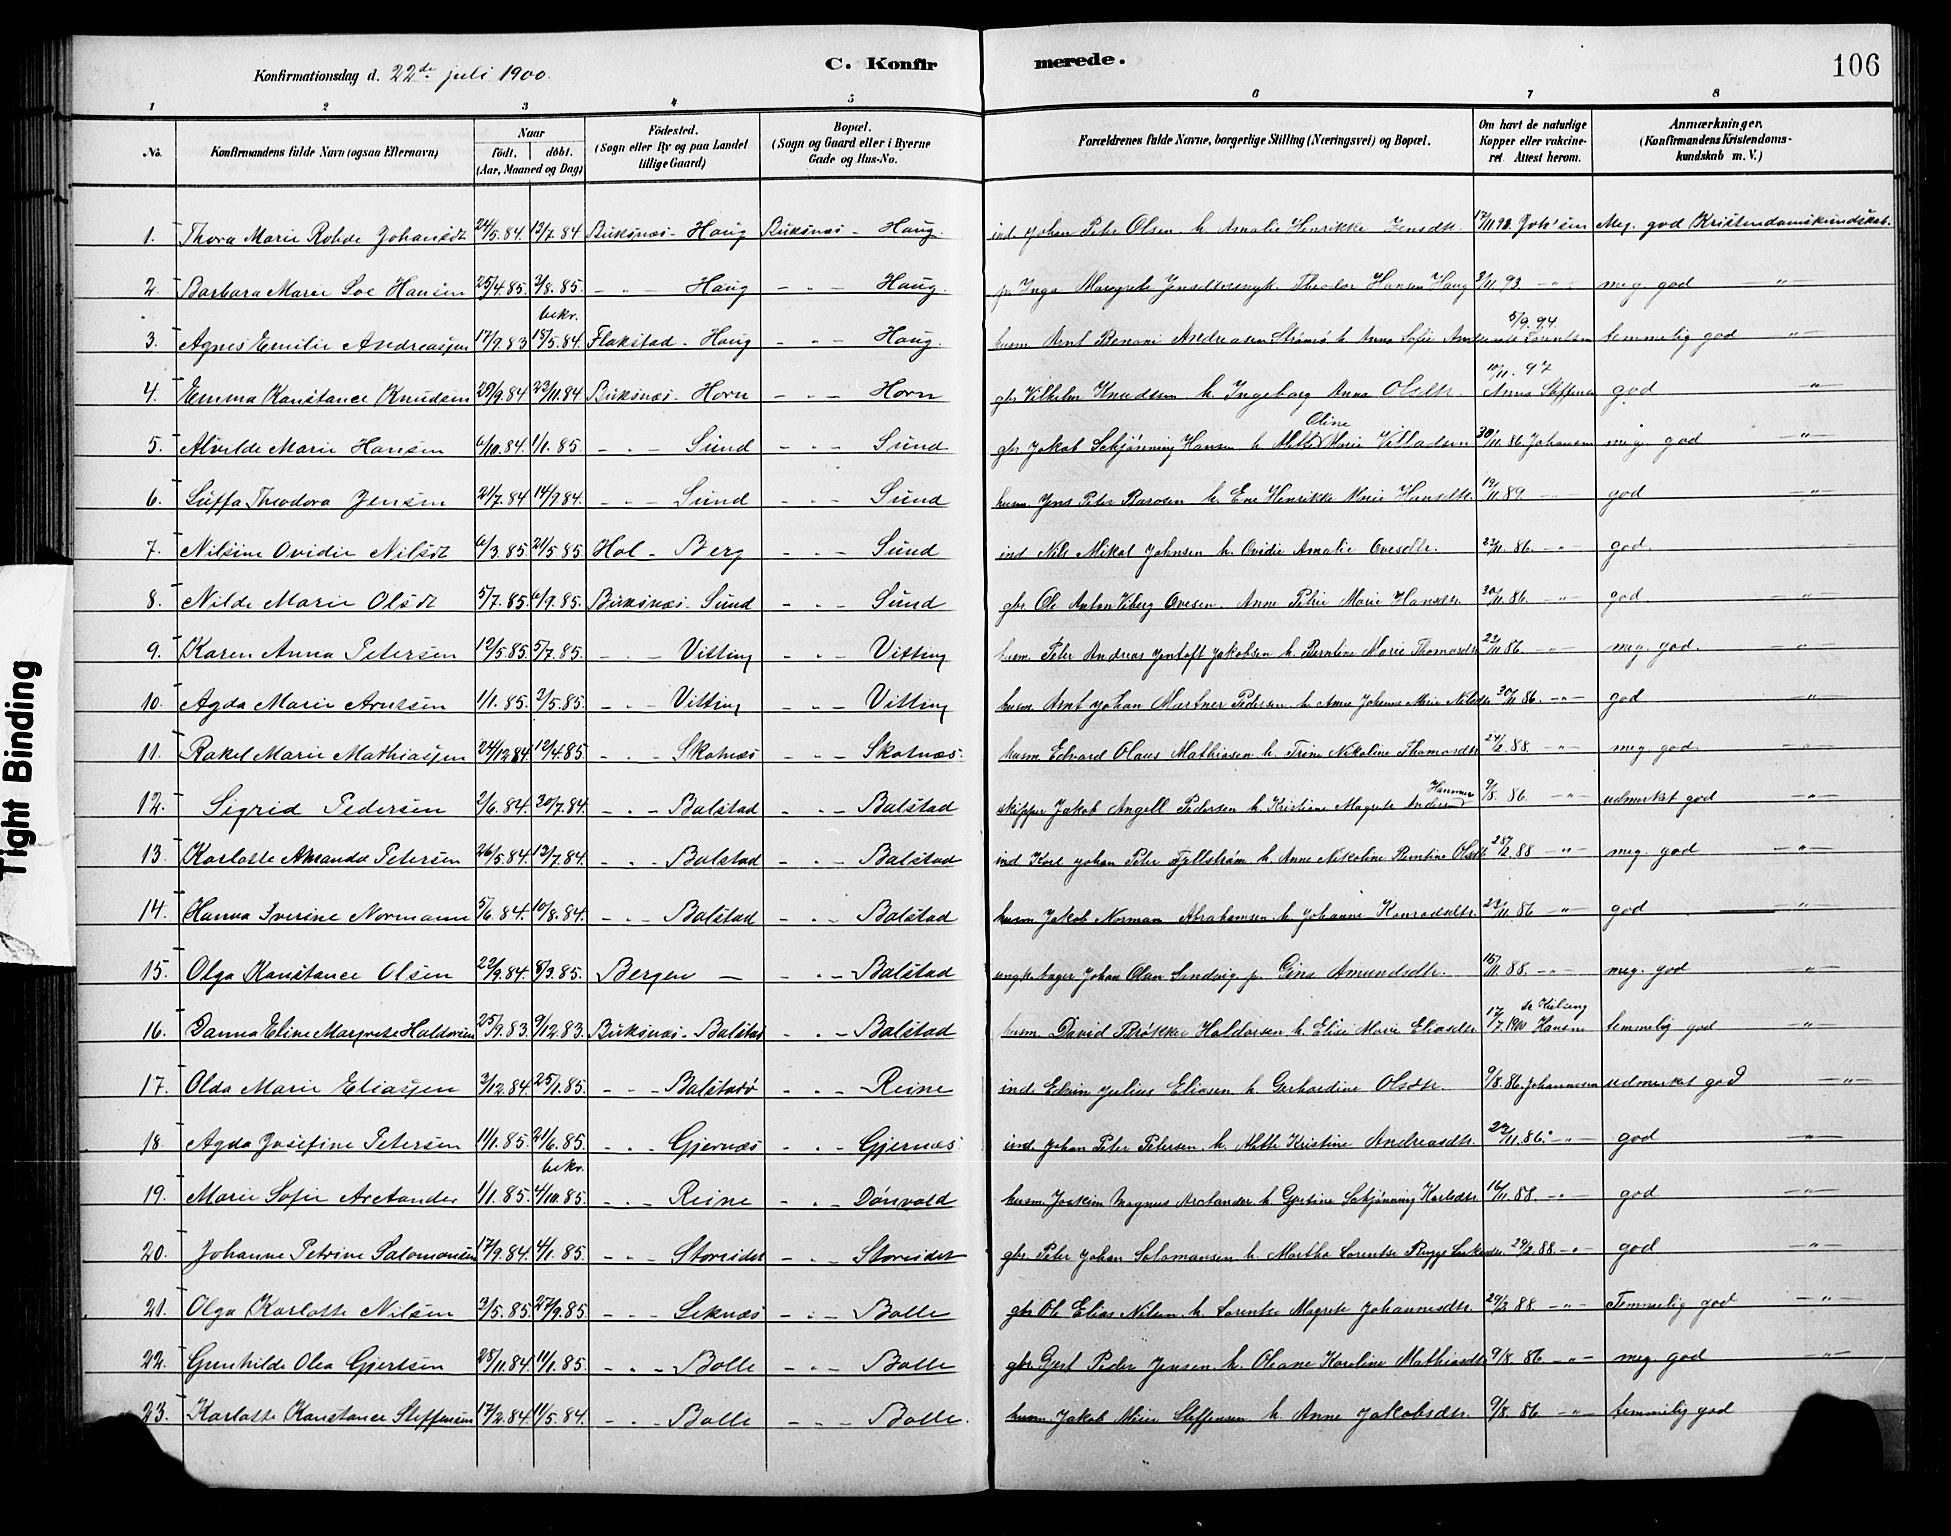 106
Konfirmationsdag d. 22de juli 1900.
C. Konfirmerede.
1 2 3 4 5 6 7 8
No. Konfirmandens fulde Navn (ogsaa Efternavn) Naar født. døbt. (Aar, Maaned og Dag) Fødested. (Sogn eller By og paa Landet tillige Gaard) Bopæl. (Sogn og Gaard eller i Byerne Gade og Hus-No. Forældrenes fulde Navne, borgerlige Stilling (Næringsvei) og Bopæl. Om havt de naturlige Kopper eller vakcineret Attest herom. Anmærkninger. (Konfirmandens Kristendomskundskab m. V.)
1. Thora Marie Rohde Johansdt 24/5.84. 13/7.84 Buksnæs - Haug Buksnæs - Haug. ind. Johan Peter Olsen h. Amalie Henrikke Jensdtr. Meg. god Kristendomskundskab.
2. Barbara Marie Hansen 25/4.85. 2/8.85. - " - Haug - " - Haug. Theodor Hansen Haug 3/11.93 - " - meg. god - " -
bekr.
3. Agnes Emilie Andreassen 17/9.83 18/5.84. Flakstad - Haug - " - Haug. husm. Arnt Benoni Andreasen h. Anna Sofie 5/9.94. temmelig god - " -
4. Emma Konstance Knudsen 29/9.84 23/11.84 Buksnæs - Horn - " - Horn gbr. Vilhelm Knudsen h. Ingeborg Anna Olsdtr. 10/11.97 Anna Steffensen god "
5. Alvilde Marie Hansen 6/10.84. 1/1.85. - " - Sund - " - Sund gbr. Jakob Schjønning Hansen h. Mette Oline Marie 30/11.86 Johansen meg. god - " -
6. Theodora Jensen 21/7.84 14/9.84. - " - Sund - " - Sund husm. Jens Peter h. Ene Henrikke Marie Hansdtr. 19/11.89 - " - god - " -
7. Nilsine Ovidie Nilsdt 6/3.85 21/5.85 Hol - Berg - " - Sund ind. Nils Mikal Johnsen h. Ovidie Amalie Ovesdtr. 23/11.86. - " - god.
8. Nilde Marie Olsdt 5/7.85. 6/9.85. Buksnæs - Sund - " - Sund gbr. Ole Anton Viberg Ovesen. Anne Petrie Marie Hansdtr. 30/11.86. - " - god - " -
9. Karen Anna Petersen 12/5.85. 5/7.85. - " - Vitting - " - Vitting husm. Peter Andreas Jentoft Jakobsen h. Berntine Marie Thomasdtr 23/11.86. - " - meg. god. "
10. Agda Marie Arntsen 1/1.85. 3/5.85. - " - Vitting - " - Vitting husm. Arnt Johan Martner Pedersen h. Anne Johanne Marie Nilsdtr 30/11.86. - " - god - " -
11. Rakel Marie Mathiassen 24/12.84. 12/4.85. - " - Skotnæs - " - Skotnæs. husm. Edvard Olaus Mathiasen h. Trine Nikoline Thomasdtr. 24/2.88 - " - meg. god. - " -
12. Sigrid Pedersen 2/6.84. 20/7.84. - " - Balstad - " - Balstad skipper Jakob Angell Pedersen h. Kristine Magrete Hammer 9/8.86. - " - udmerket god - " -
13. Karlotte Amanda Petersen 26/5.84. 13/7.84. - " - Balstad - " - Balstad ind. Karl Johan Peter Fjellstrøm h. Anne Nikoline Berntine Olsdtr. 28/2.88 - " - meg. god - " -
14. Hanna Iverine Normann 5/6.84. 10/8.84. - " - Balstad - " - Balstad husm. Jakob Norman Abrahamsen h. Johanne Konradsdtr. 23/11.86 - " - god - " -
15. Olga Konstance Olsen 22/9.84. 8/3.85. Bergen - - " - Balstad ungk. bager Johan Olsen Sandvig p. Gina Amundsdtr. 15/11.88. - " - meg. god - " -
16. Danna Eline Margrete Haldorsen 25/9.83. 9/12.83. Buksnæs - Balstad - " - Balstad husm. David Brökke Haldorsen h. Elise Marie Eliasdtr 17/7.1900 Hansen temmelig god "
17. Olda Marie Eliassen 3/12.84. 25/1.85. - " - Balstad - " - Reine ind. Edvin Julius Eliasen h. Gerhardine Olsdtr. 9/8.86. Johannesen udmerket god - " -
18. Agda Josefine Petersen 11/1.85. 21/6.85. - " - Gjernæs - " - Gjernæs. ind. Johan Peter Petersen h. Alethe Kristine Andreasdtr. 22/11.86. - " - god - " -
bekr.
19. Marie Sofie Arctander 1/1.85. 4/10.85. - " - Reine - " - Dønvold husm. Joakim Magnus Arctander h. Gjertine Schjønning Karlsdtr. 16/11.88 - " - god - " -
20. Johanne Petrine Salomonsen 17/9.84. 4/1.85. - " - Storeidet - " - Storeidet gbr. Peter Johan Salomonsen h. Martha Lorentse 29/2.88. - " - god - " -
21. Olga Karlotte Nilsen 3/5.85. 27/9.85. - " - Leknæs - " - Bolle gbr. Ole Elias Nilsen h. Lorentse Magrete Johannesdtr. 29/2.88 - " - Temmelig god - " -
22. Gunhilde Olea Gjertsen 28/11.84. 11/1.85. - " - Bolle - " - Bolle gbr. Gjert Peder Jensen h. Oleane Karoline Mathiasdtr 9/8.86 - " - meg. god - " -
23. Karlotte Konstance Steffensen 17/2.84. 11/5.84. - " - Bolle - " - Bolle. husm. Jakob Meier Steffensen h. Anne Jakobsdtr. 9/8.86 - " - temmelig god
Tight Binding